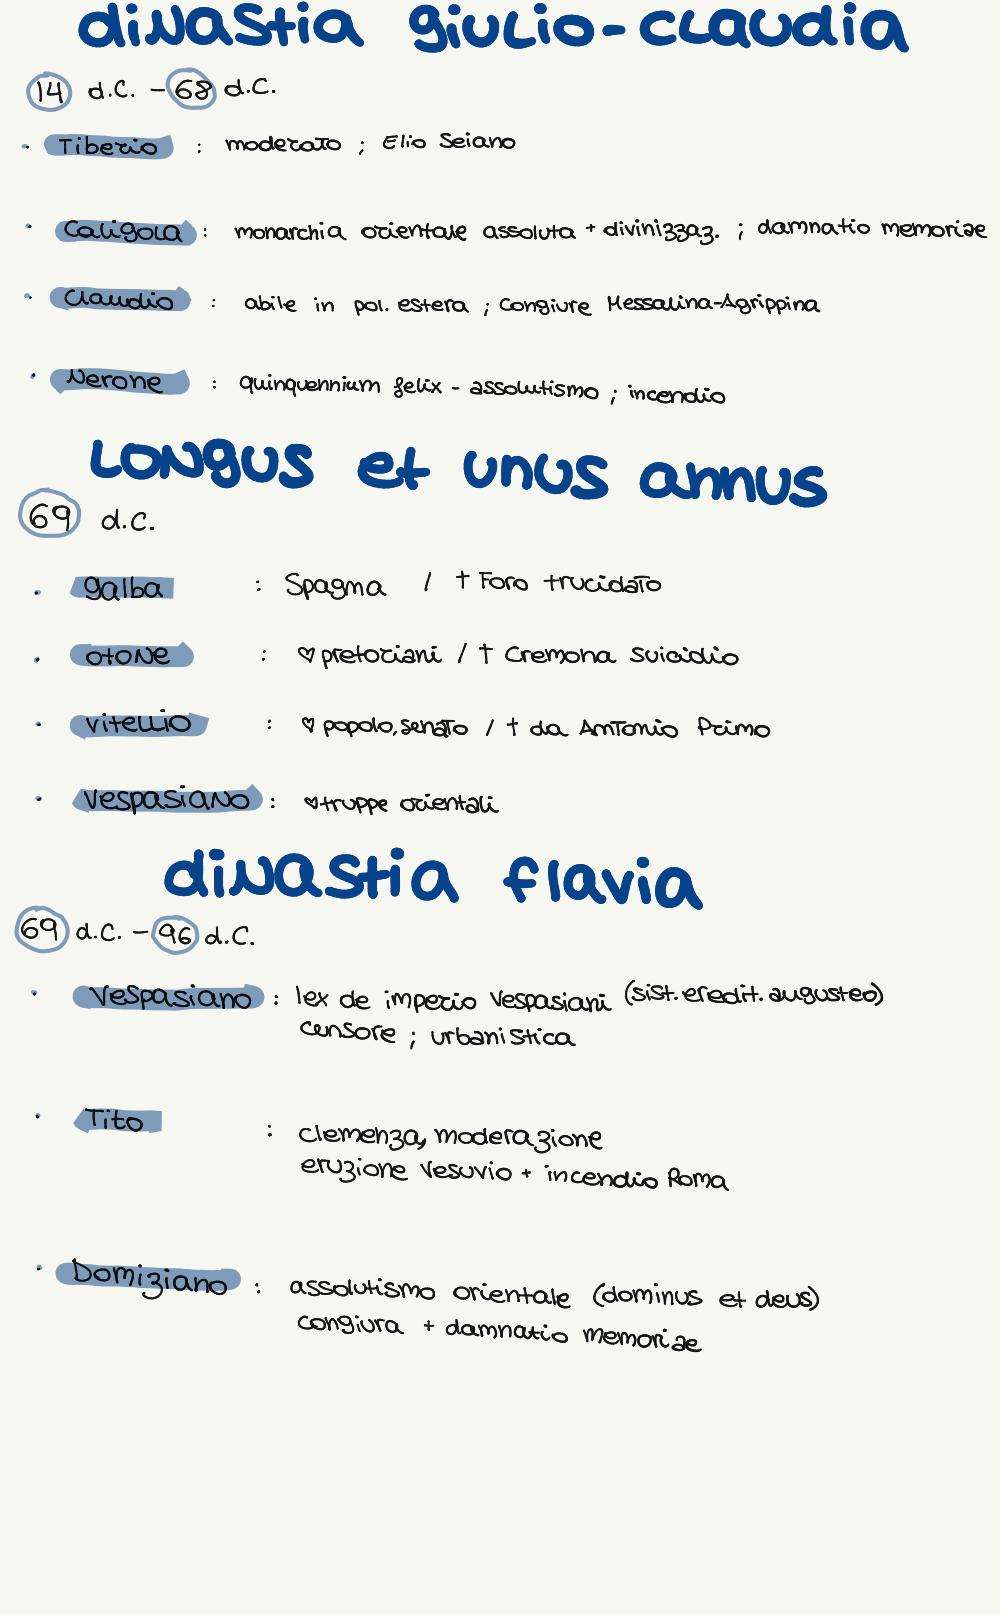 dinastia giulio-claudia
14 d.C. - 68 d.C.
· Tiberio : moderato ; Elio Seiano
· Caligola : monarchia orientale assoluta + divinizzaz. ; damnatio memoriae
· Claudio : abile in pol. estera ; Congiure Messalina-Agrippina
· Nerone : quinquennium felix - assolutismo ; incendio
Longus et unus annus
69 d.C.
· galba : Spagna / † Foro trucidato
· otone : ♡ pretoriani / † Cremona suicidio
· vitellio : ♡ popolo, senato / † da Antonio Primo
· Vespasiano : ♡ truppe orientali
dinastia flavia
69 d.C. - 96 d.C.
· Vespasiano : lex de imperio Vespasiani (sist. eredit. augusteo)
censore ; urbanistica
· Tito : clemenza, moderazione
eruzione Vesuvio + incendio Roma
· Domiziano : assolutismo orientale (dominus et deus)
congiura + damnatio memoriae